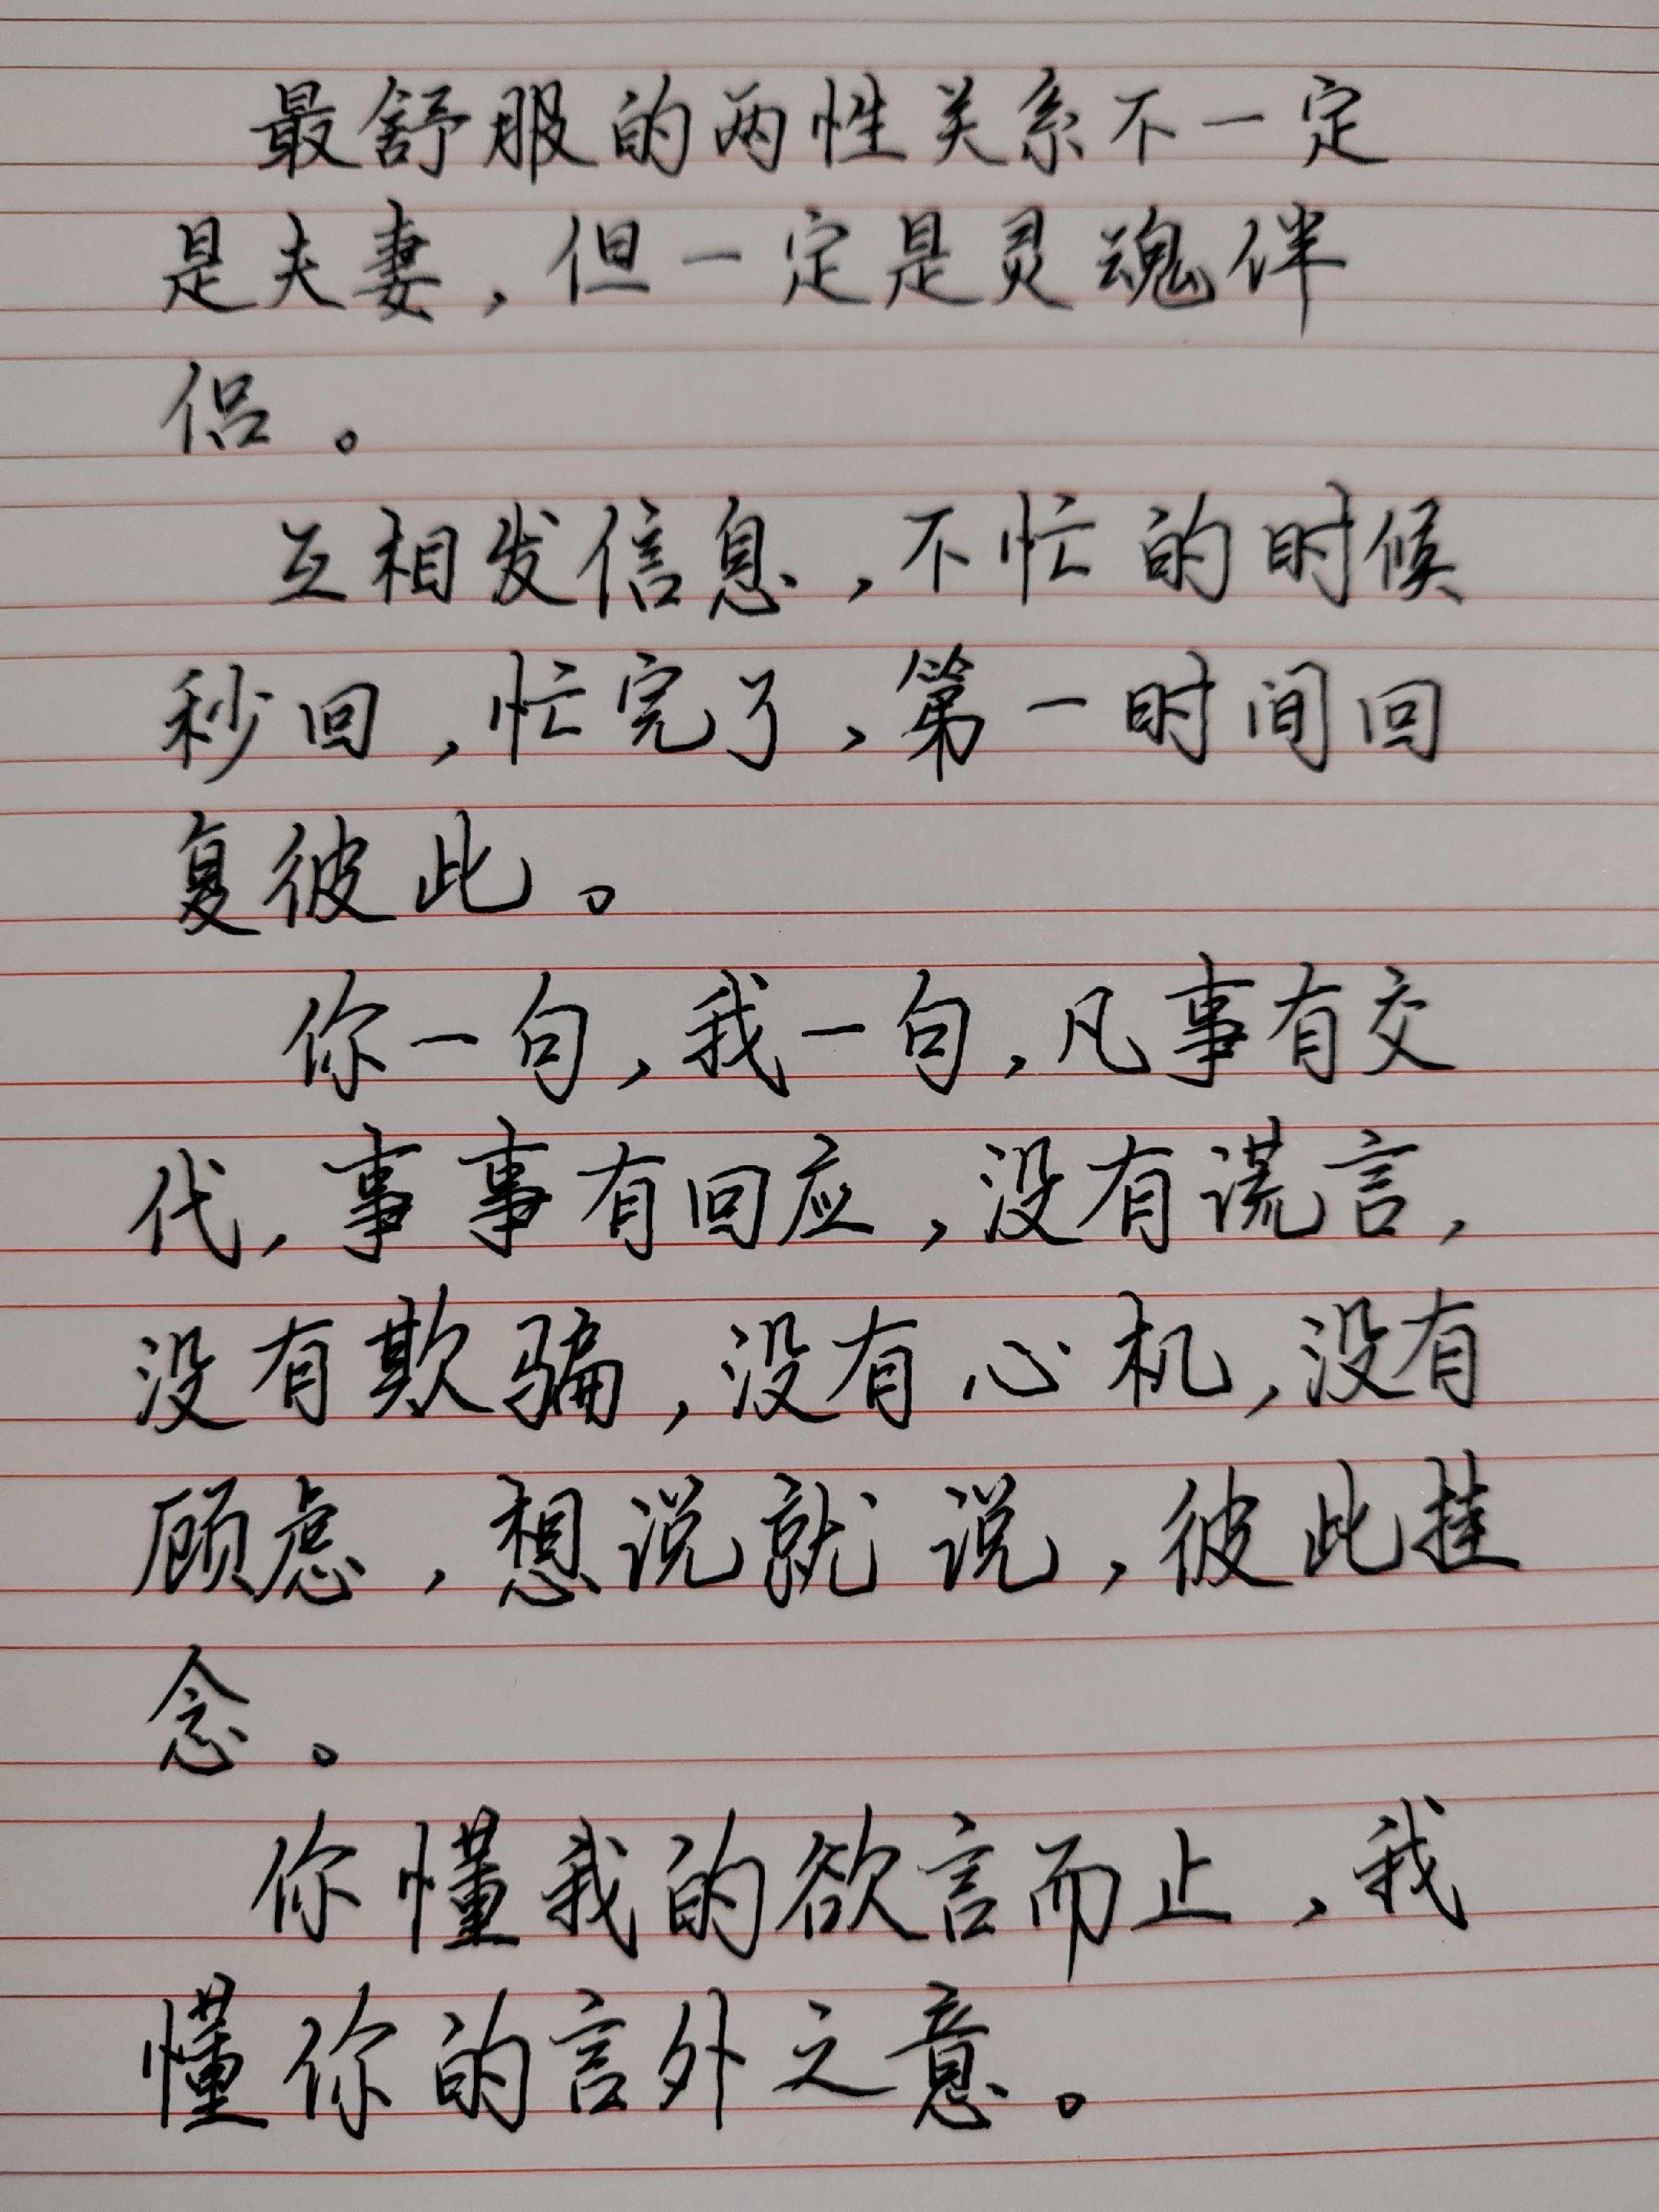 最舒服的两性关系不一定
是夫妻，但一定是灵魂伴
侣。
互相发信息，不忙的时候
秒回，忙完了，第一时间回
复彼此。
你一句，我一句，凡事有交
代，事事有回应，没有谎言，
没有欺骗，没有心机，没有
顾虑，想说就说，彼此挂
念。
你懂我的欲言而止，我
懂你的言外之意。